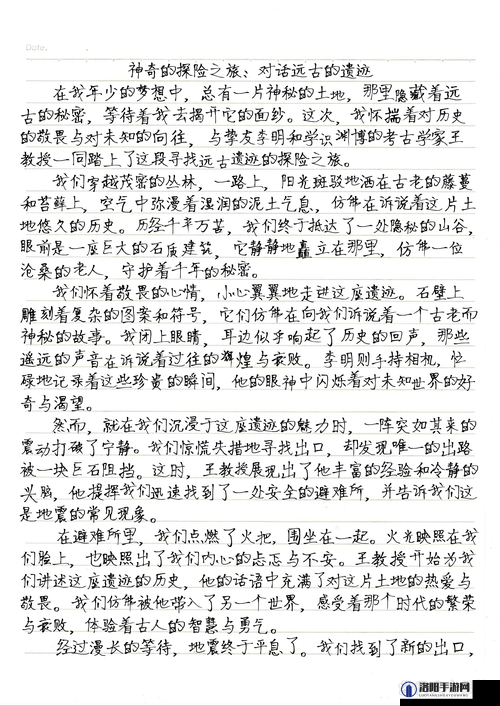 Date.
神奇的探险之旅、对话远古的遗迹
在我年少的梦想中，总有一片神秘的土地，那里隐藏着远
古的秘密，等待着我去揭开它的面纱。这次，我怀揣着对历史
的敬畏与对未知的向往，与挚友李明和学识渊博的考古学家王
教授一同踏上了这段寻找远古遗迹的探险之旅。
我们穿越茂密的丛林，一路上，阳光斑驳地洒在古老的藤蔓
和苔藓上，空气中弥漫着湿润的泥土气息，仿佛在诉说着这片土
地悠久的历史。历经千辛万苦，我们终于抵达了一处隐秘的山谷，
眼前是一座巨大的石质建筑，它静静地矗立在那里，仿佛一位
沧桑的老人，守护着千年的秘密。
我们怀着敬畏的心情，小心翼翼地走进这座遗迹。石壁上
雕刻着复杂的图案和符号，它们仿佛在向我们诉说着一个古老而
神秘的故事。我闭上眼睛，耳边似乎响起了历史的回声，那些
遥远的声音在诉说着过往的辉煌与衰败。李明则手持相机，忙
碌地记录着这些珍贵的瞬间，他的眼神中闪烁着对未知世界的好
奇与渴望。
然而，就在我们沉浸于这座遗迹的魅力时，一阵突如其来的
震动打破了宁静。我们惊慌失措地寻找出口，却发现唯一的出路
被一块巨石阻挡。这时，王教授展现出了他丰富的经验和冷静的
头脑，他指挥我们迅速找到了一处安全的避难所，并告诉我们这
是地震的常见现象。
在避难所里，我们点燃了火把，围坐在一起。火光映照在我
们脸上，也映照出了我们内心的忐忑与不安。王教授开始为我
们讲述这座遗迹的历史，他的话语中充满了对这片土地的热爱与
敬畏。我们仿佛被他带入了另一个世界，感受着那个时代的繁荣
与衰败，体验着古人的智慧与勇气。
经过漫长的等待，地震终于平息了。我们找到了新的出口，
洛阳手游网